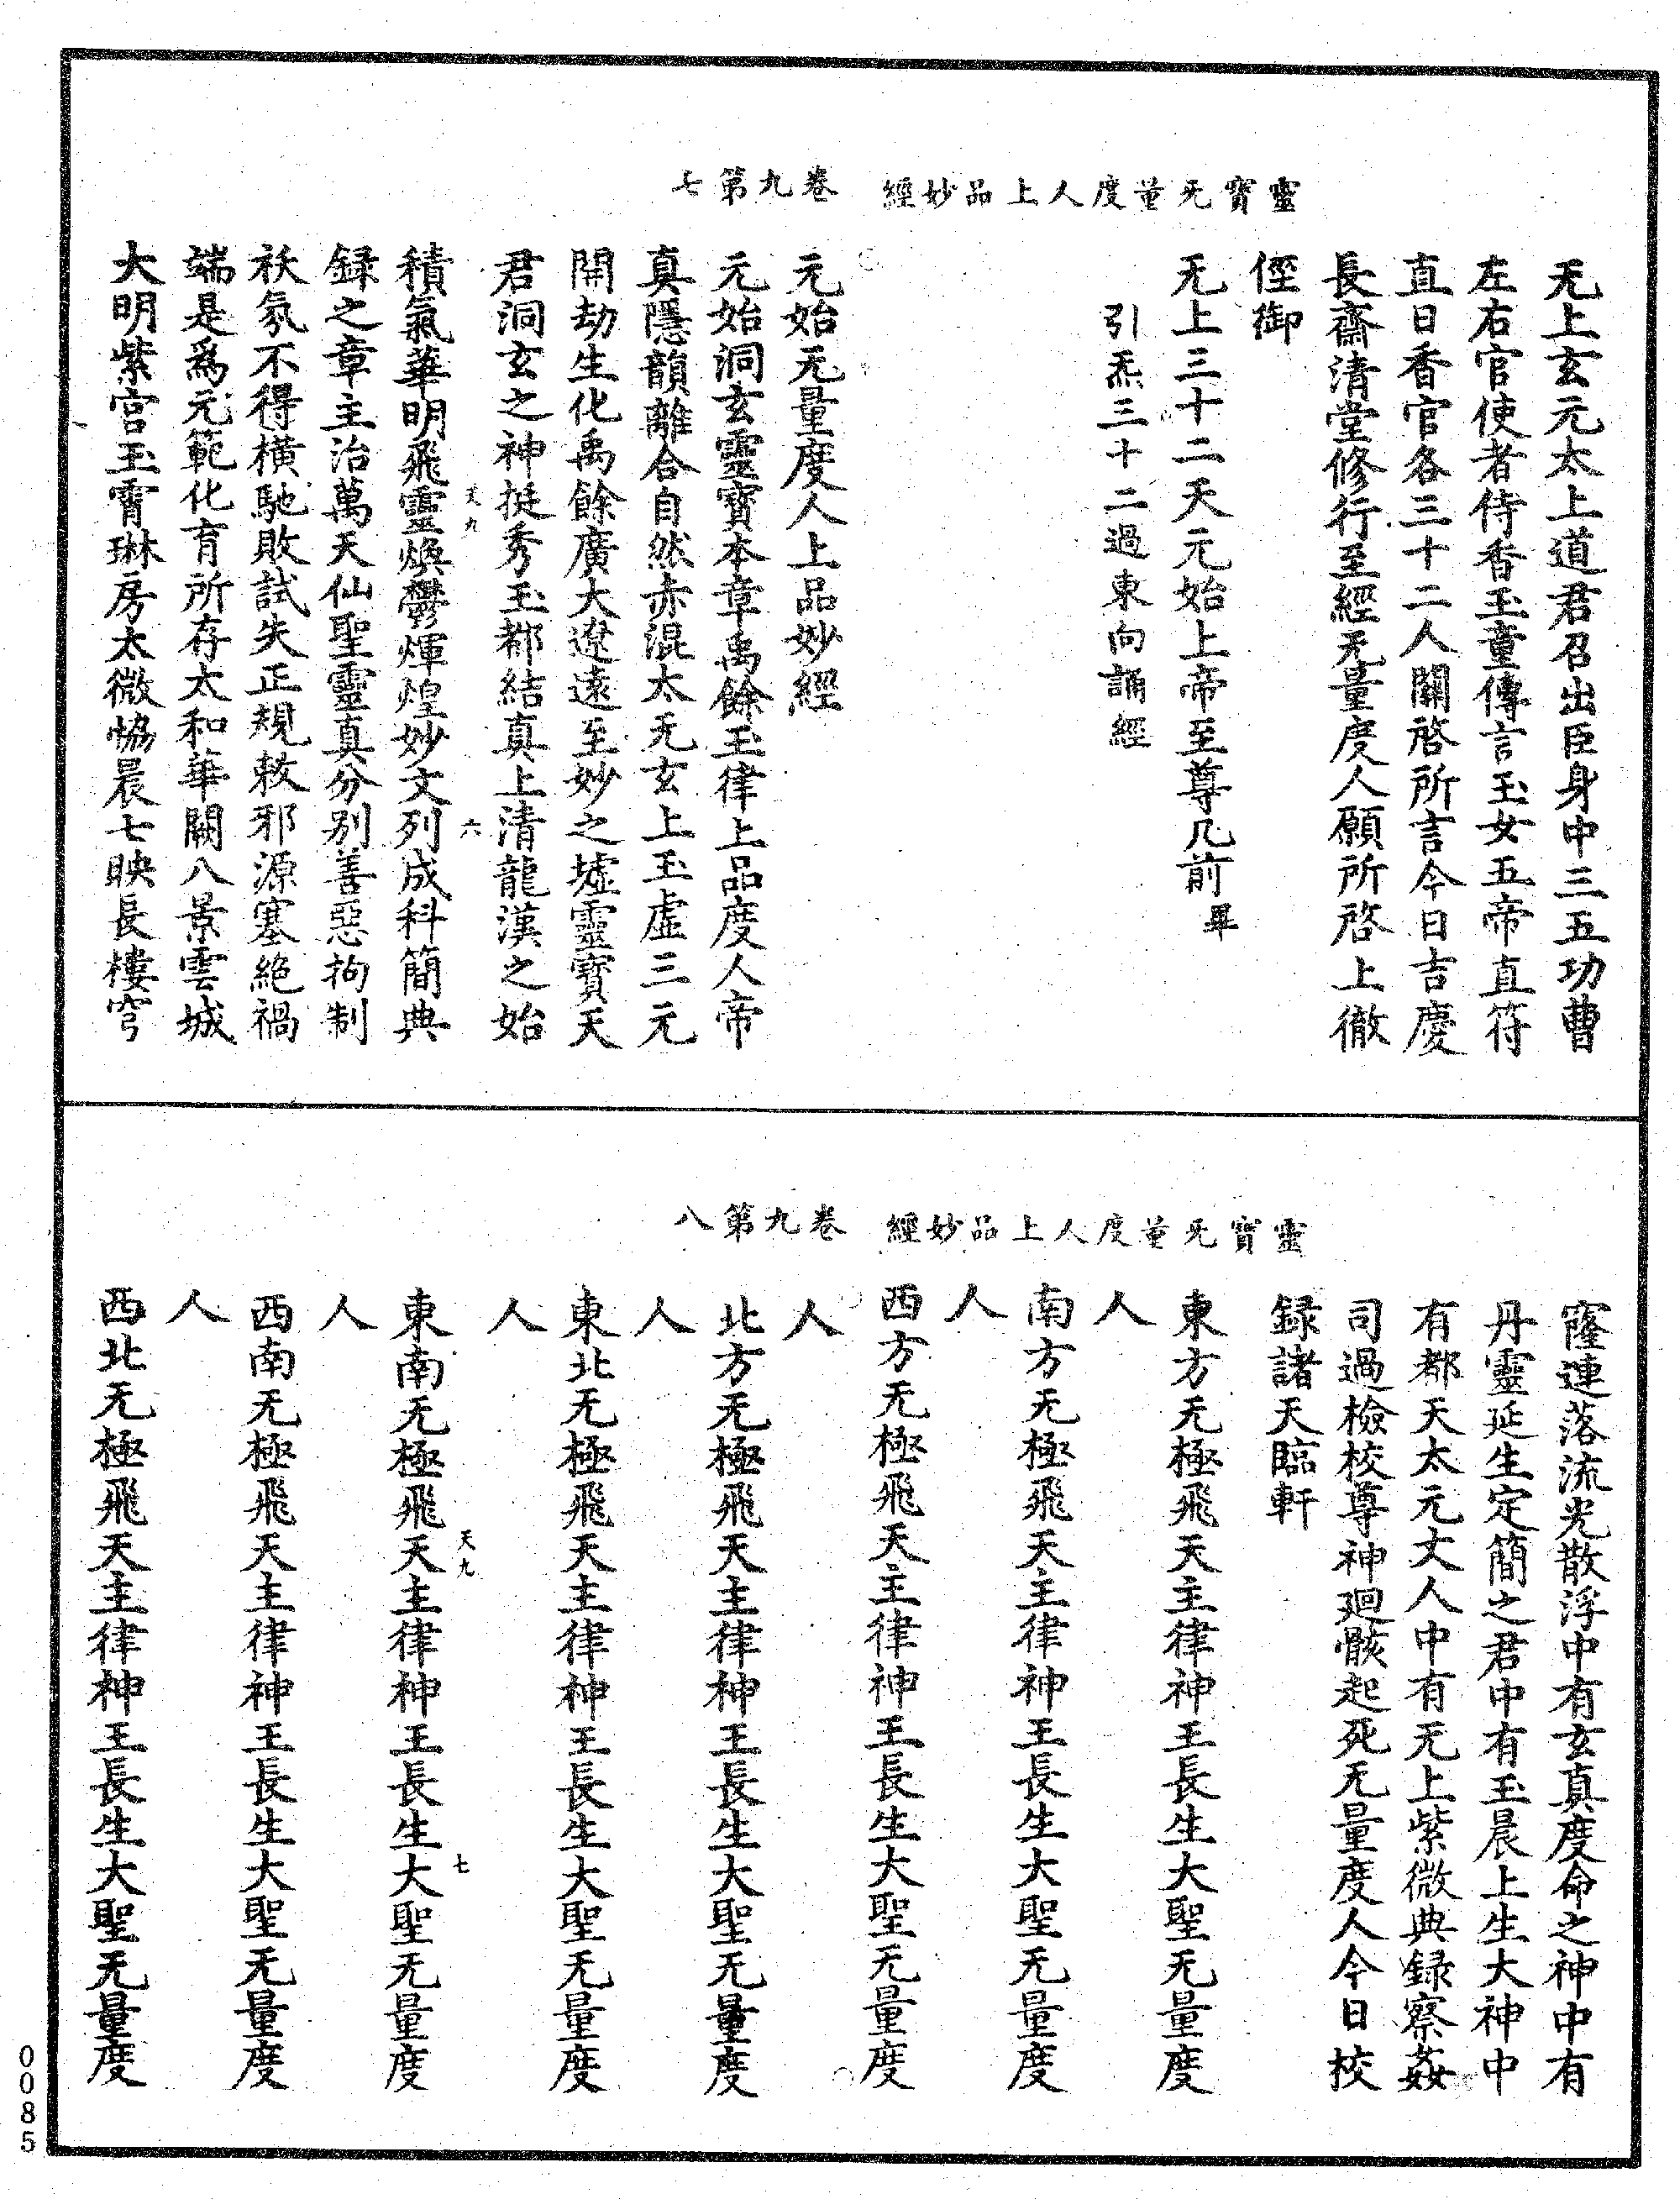 靈寶无量度人上品妙經　卷九第七
无上玄元太上道君召出臣身中三五功曹
左右官使者侍香玉童傳言玉女五帝直符
直日香官各三十二人關啓所言今日吉慶
長齋清堂修行至經无量度人願所啓上徹
徑御
无上三十二天元始上帝至尊几前畢
引炁三十二過東向誦經
元始无量度人上品妙經
元始洞玄靈寶本章禹餘玉律上品度人帝
真隱韻離合自然赤混太无玄上玉虛三元
開劫生化禹餘廣大遼遠至妙之墟靈寶天
君洞玄之神挺秀玉都結真上清龍漢之始
天九　六
積氣華明飛靈煥鬱煇煌妙文列成科簡典
錄之章主治萬天仙聖靈真分別善惡拘制
祅氛不得橫馳敗試失正規敕邪源塞絕禍
端是爲元範化育所存太和華闕八景雲城
大明紫宫玉霄琳房太微恊晨七映長樓穹
靈寶无量度人上品妙經　卷九第八
窿連落流光散浮中有玄真度命之神中有
丹靈延生定簡之君中有玉晨上生大神中
有都天太元丈人中有无上紫微典録察姦
司過檢校尊神廻骸起死无量度人今日校
録諸天臨軒
東方无極飛天主律神王長生大聖无量度
人
南方无極飛天主律神王長生大聖无量度
人
西方无極飛天主律神王長生大聖无量度
人
北方无極飛天主律神王長生大聖无量度
人
東北无極飛天主律神王長生大聖无量度
人
天九　七
東南无極飛天主律神王長生大聖无量度
人
西南无極飛天主律神王長生大聖无量度
人
西北无極飛天主律神王長生大聖无量度
0085